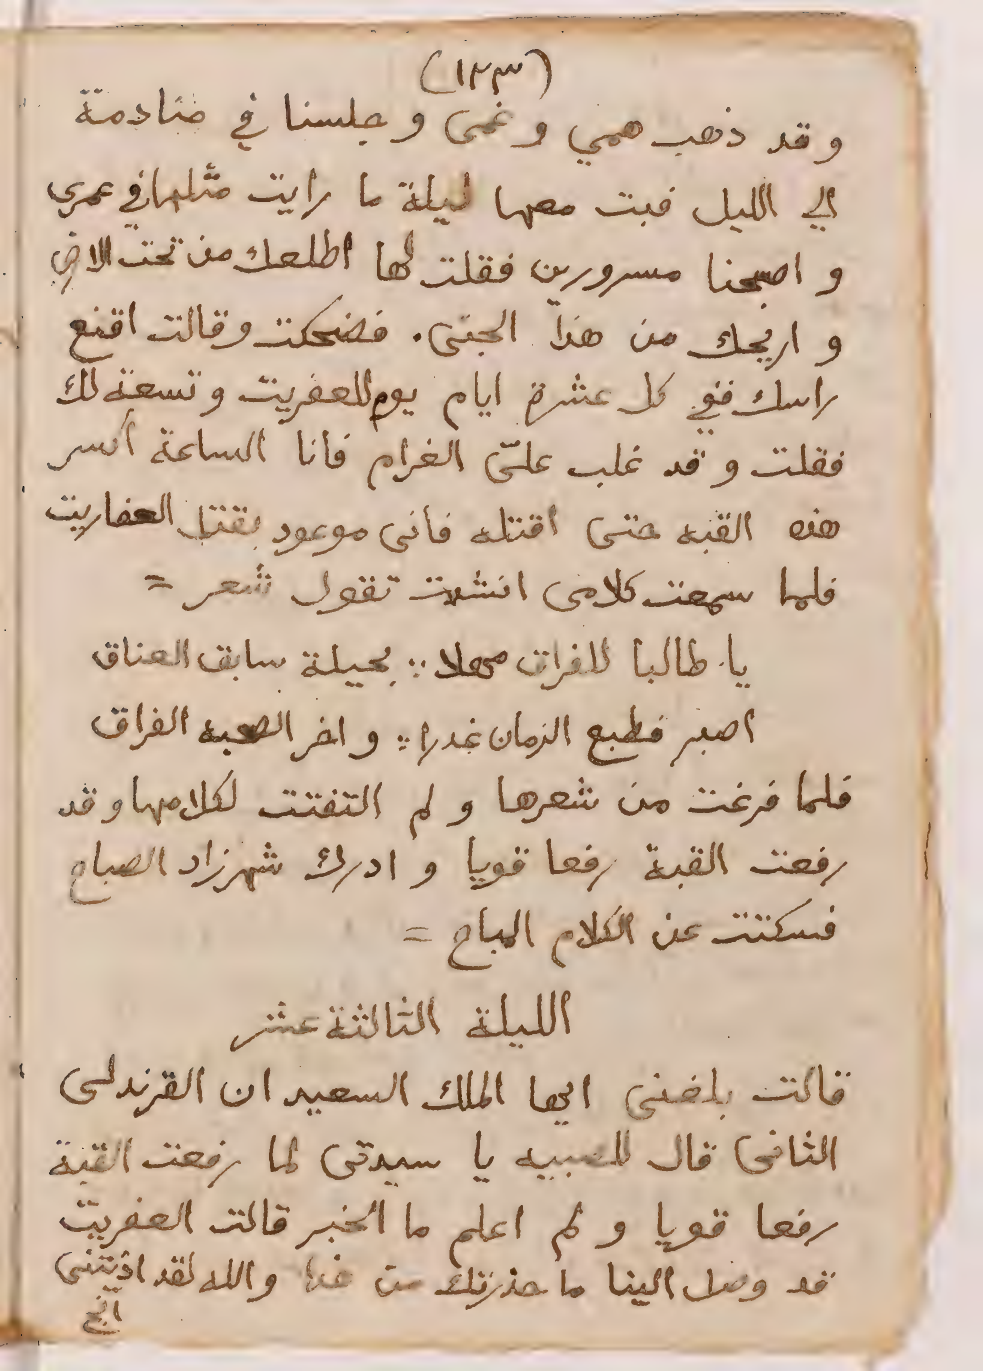 (١٢٣)
و قد ذهب همي و غمى و جلسنا في منادمة
الي الليل فبت معها ليلة ما رايت مثلها في عمري
و اصبحنا مسرورين فقلت لها اطلعك من تحت الارض
و اريحك من هذا الجنى. فضحكت و قالت اقنع
راسك ففي كل عشرة ايام يوم للعفريت و تسعة لك
فقلت و قد غلب علىّ الغرام فانا الساعة أكسر
هذه القبه حتى اقتله فانى موعود بقتل العفاريت
فلما سمعت كلامى انشدت تقول شعر =
يا طالبا للفراق مهلا :: بحيلة سابق العناق
اصبر فطبع الزمان غدرا :: و اخر الصحبه الفراق
فلما فرغت من شعرها و لم التفتت لكلامها و قد
رفعت القبة رفعا قويا و ادرك شهرزاد الصباح
فسكتت عن الكلام المباح =
الليلة الثالثة عشر
قالت بلغنى ايها الملك السعيد ان القرندلى
الثانى قال للصبيه يا سيدتى لما رفعت القبة
رفعا قويا و لم اعلم ما الخبر قالت العفريت
قد وصل الينا ما حذرتك من هذا والله لقد اذيتنى
انج